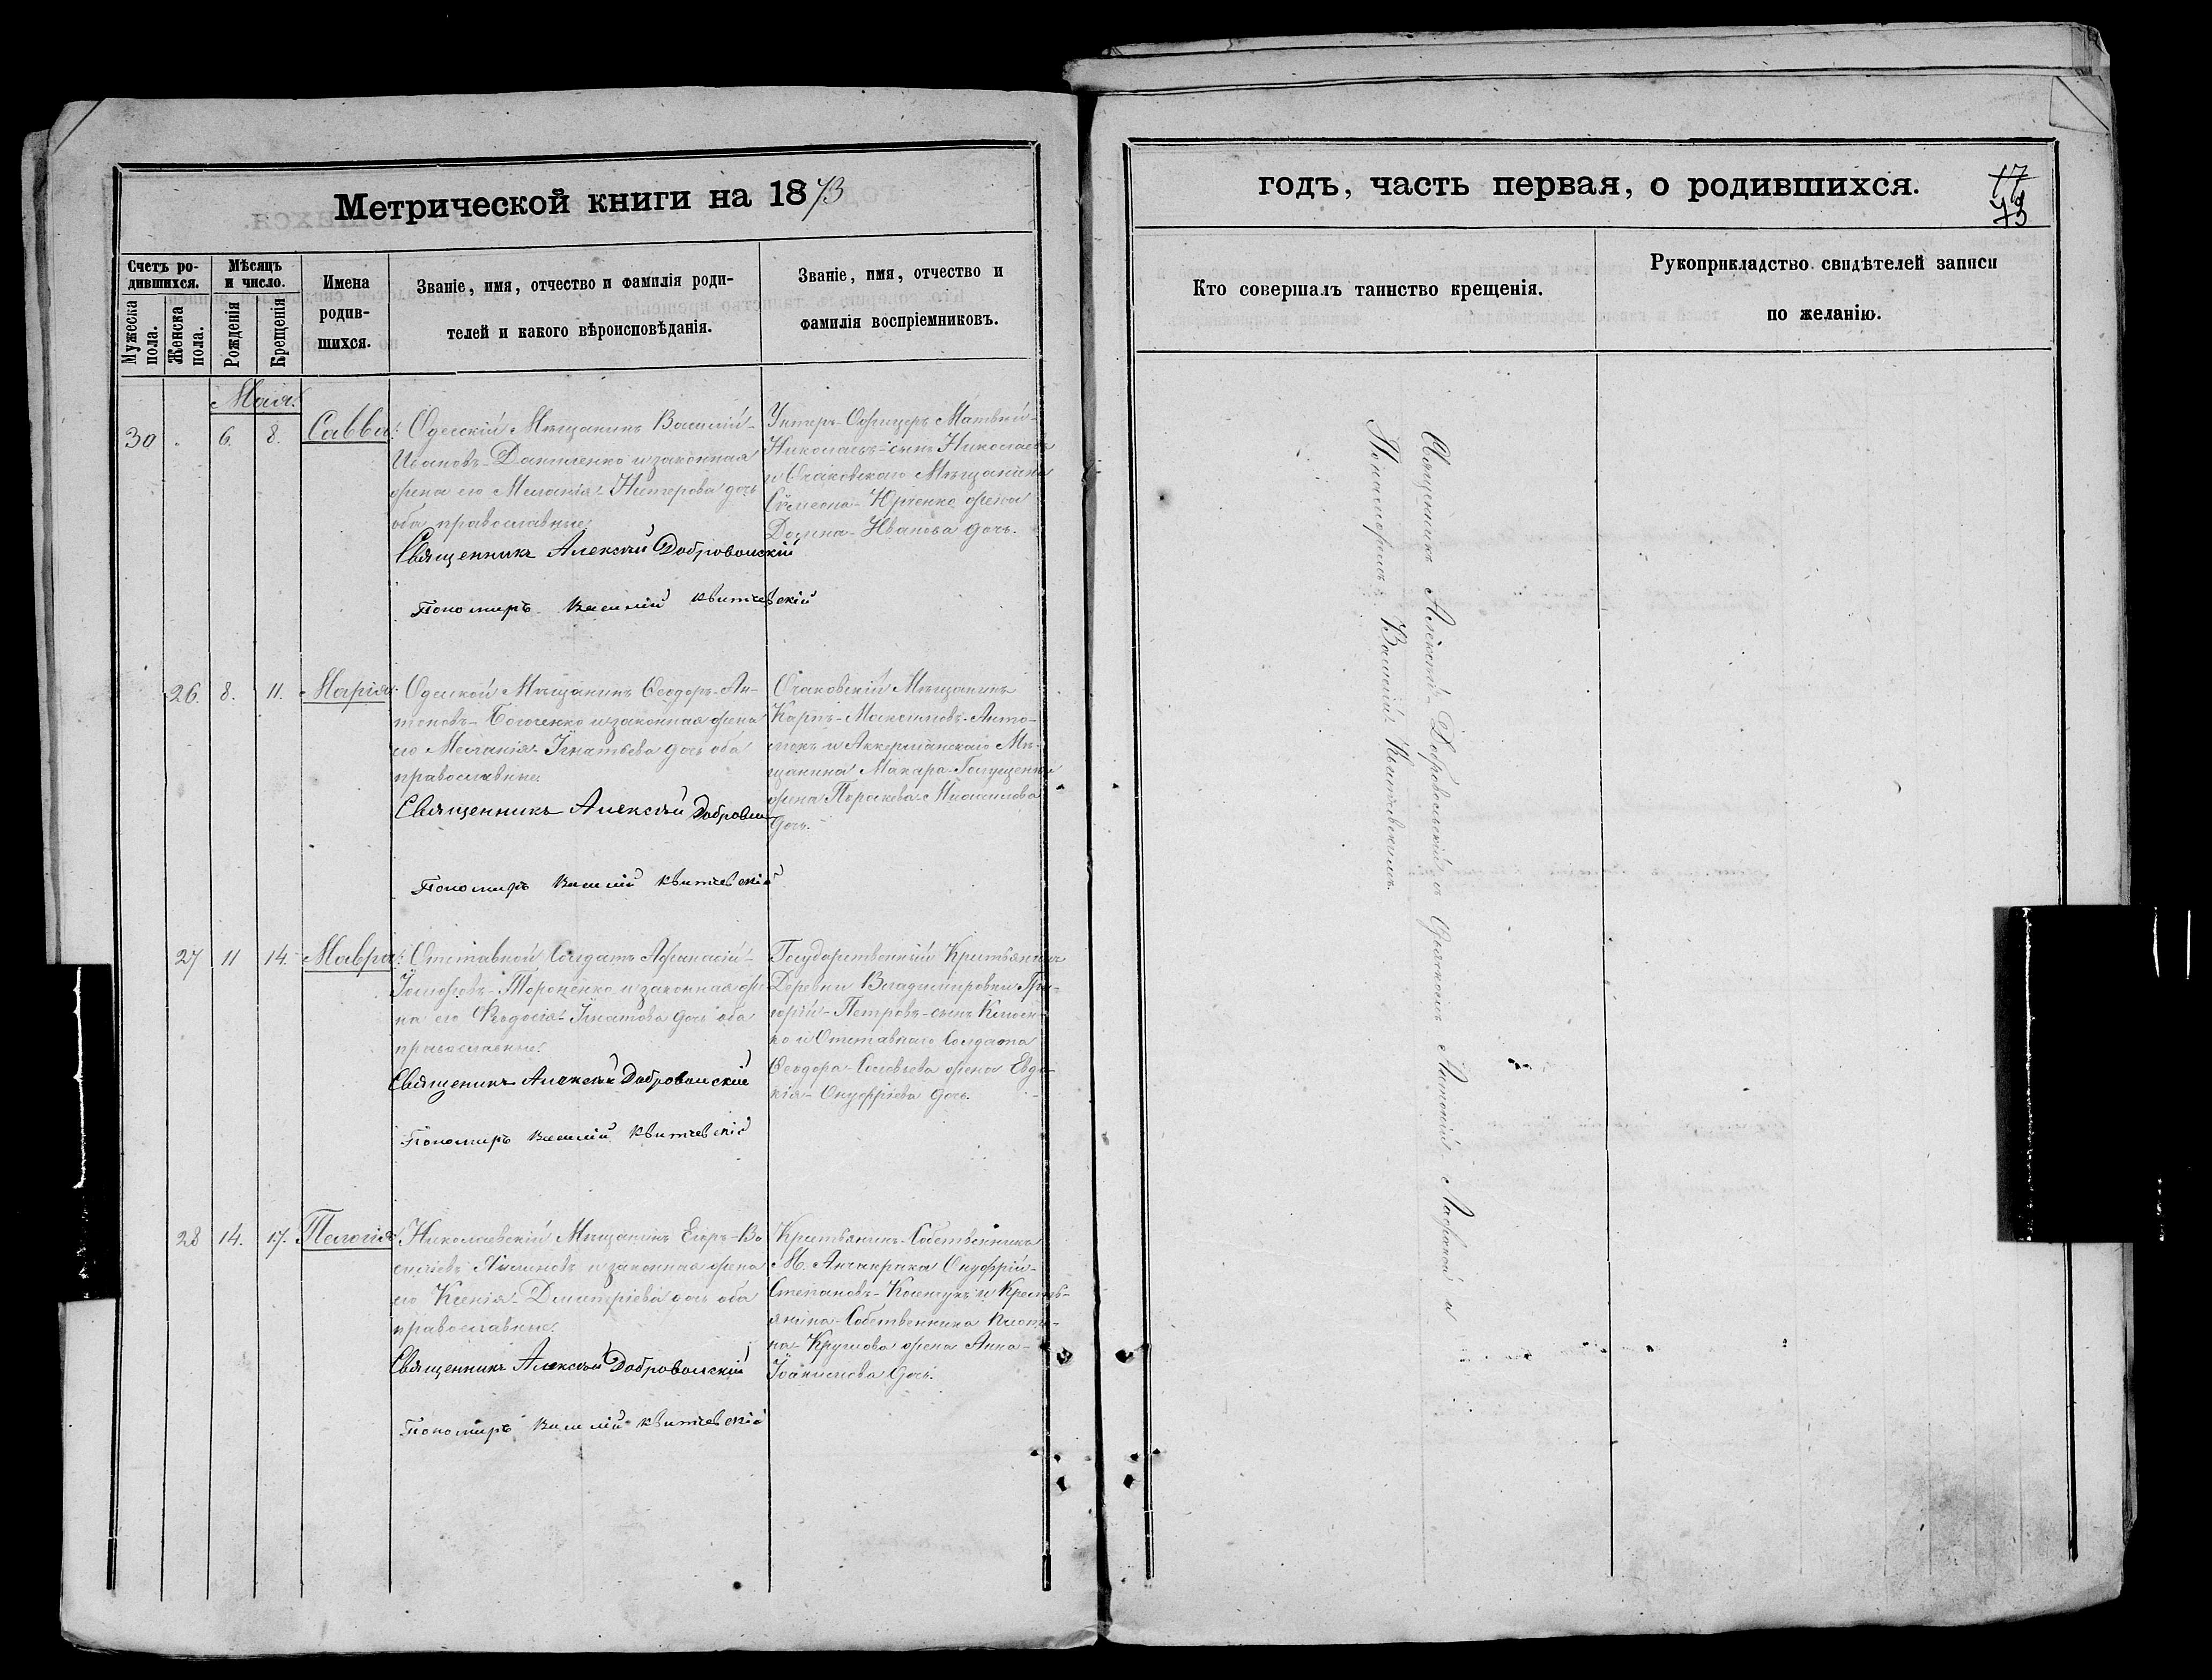 Метрической книги на 1873
Счетъ ро-
дившихся.
Мужеска
пола.
Женска
пола.
Мѣсяцъ
и число.
Рожденія
Крещенія
Имена
родив-
шихся.
Званіе, имя, отчество и фамилія роди-
телей и какого вѣроисповѣданія.
Званіе, имя, отчество и
фамилія воспріемниковъ.
Мая.
30 6. 8. Савва.
Одесскій Мѣщанинъ Василій-
Ивановъ-Даниленко и законная
жена его Меланія- дочь
оба православные.
Священникъ Алексѣй Добровольскій
Пономарь Василій Квитчевскій
Унтеръ-Офицеръ Матвѣй-
Николаевъ-сынъ Николаевъ
и Очаковскаго Мѣщанина
Сѵмеона-Юрченко жена
Домна-Иванова дочь.
26. 8. 11. Марія.
Одесской Мѣщанинъ Ѳеодоръ-Ан-
тоновъ- и законная жена
его Меланія-Игнатьева дочь оба
православные.
Священникъ Алексѣй Доброволь
Пономарь Василій Квитчевскій
Очаковскій Мѣщанинъ
Карпъ-Максимовъ-Анто-
и Аккерманскаго Мѣ-
щанина Макара-
жена Параскева-Михаилова
дочь.
27 11 14. Мавра.
Отставной Солдатъ Афанасій-
Іосифовъ- и законная же-
на его Ѳеодосія-Игнатова дочь оба
православные.
Священикъ Алексѣй Добровольскій
Пономарь Василій Квитчевскій
Государственный Крестьянинъ
Деревни Владимировки Гри-
горій-Петровъ-сынъ
и Отставнаго Солдата
Ѳеодора-Соловьева жена Евдо-
кія-Онуфріева дочь.
28 14. 17. Пелагія
Николаевскій Мѣщанинъ Егоръ-Ва
сильевъ и законная жена
его Ксенія-Дмитріева дочь оба
православные.
Священникъ Алексѣй Добровольскій
Пономарь Василій Квитчевскій
Крестьянинъ-Собственникъ
М. Анчакрака Онуфрій-
Степановъ-Костюкъ и Кресть-
янина-Собственника
жена Анна-
Іоакимова дочь.
годъ, часть первая, о родившихся.
17
73
Кто совершалъ таинство крещенія.
Рукоприкладство свидѣтелей записи
по желанію.
Священникъ Алексѣй-Добровольскій съ и
Пономаремъ Василій-Квитчевскимъ.